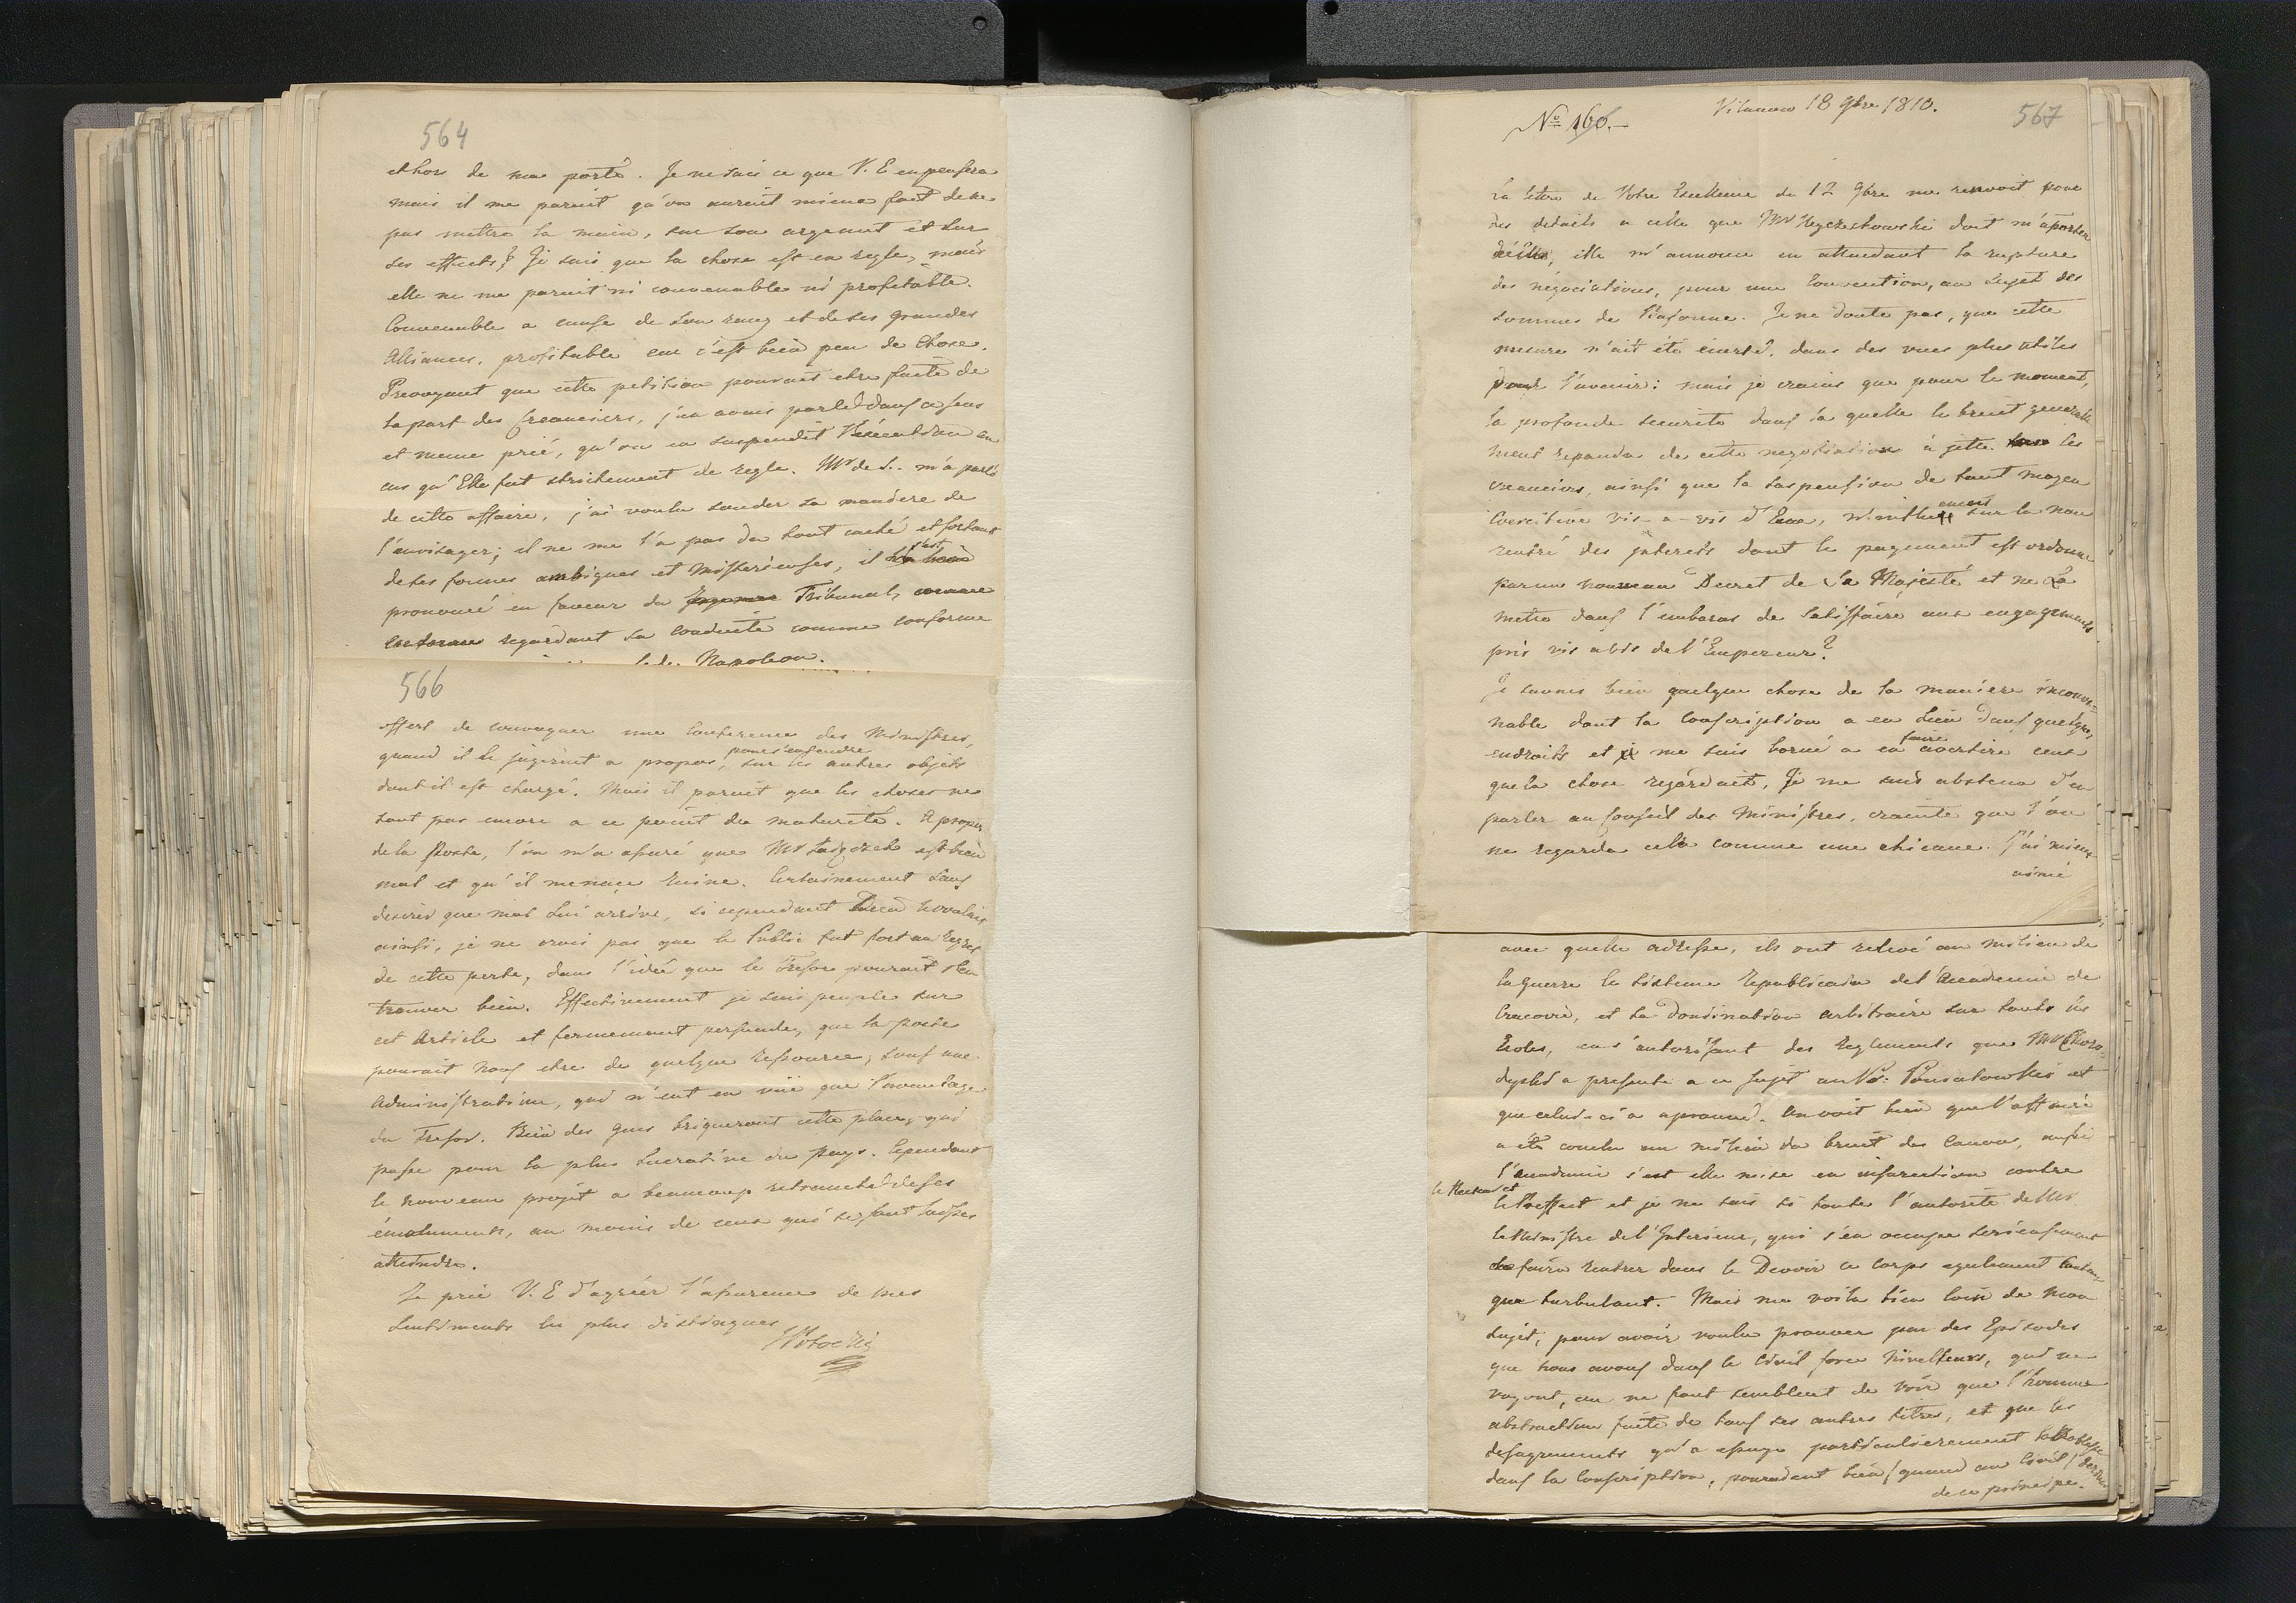 564
et hors de ma porté. Je ne sais ce que V. E en pensera
mais il me parait qu'on aurait mieux fait de ne
pas mettre la main, sur son argent et sur
ses effects? Je sais que la chose est en regle, mais
elle ne me parait ni convenable ni profitable.
Convenable a cause de son rang et de ses grandes
Alliances, profitable car c'est bien peu de chose.
Prevoyant que cette petition pouvait etre faite de
la part des Creanciers, j'en avais parlé dans ce sens
et meme prié, qu'on en suspendit l'execution en
cas qu'Elle fut strictement de regle. Mr de S.. m'a parlé
de cette affaire, j'ai voulu sonder sa maniere de
l'envisager; il ne me l'a pas du tout caché et sortant
de ses formes ambigues et misterieuses, il s'est
prononcé en faveur du Tribunal,
regardant sa conduite comme conforme
Napoleon.
566
offert de convoquer une Conference des Ministres,
quand il le jugerait a propos, pour s'entendre sur les autres objets
dont il est chargé. Mais il parait que les choses ne
sont pas encore a ce point de maturité. A propos
de la Poste, l'on m'a assuré que Mr est bien
mal et qu'il menace ruine. Certainement sans
desirer que mal lui arrive, si cependant Dieu le voulait
ainsi, je ne crois pas que le Public fut fort au regret
de cette perte, dans l'idée que le Tresor pourait s'en
trouver bien. Effectivement je suis peuple sur
cet Article et fermement persuadé, que la poste
pourait nous etre de quelque ressource, sous une
Administration, qui n'eut en vüe que l'avantage
du Tresor. Bien des gens briqueront cette place, qui
passe pour la plus lucrative du pays. Cependant
le nouveau projet a beaucoup retranché de ses
émoluments, au moins de ceux qui se sont laissés
atteindre.
Je prie V. E d'agréer l'assurance de mes
sentiments les plus distingués
SPotocki
No 166.
Vilanow 18 9bre 1810.
567
La lettre de Votre Excellence du 12 9bre me renvoit pour
des details a celle que Mr doit m'aporter
d'Elle, elle m'annonce en attendant la rupture
des négociations, pour une Convention, au sujet des
sommes de Bajonne. Je ne doute pas, que cette
mesure n'ait été dans des vues plus utiles
pour l'avenir: mais je crains que pour le moment,
la profonde securite dans la quelle le bruit generale
ment repandu de cette negotiation a jetté les
creanciers, ainsi que la suspension de tout moyen
Coercitive vis-a-vis d'Eux, sur la non
rentré des interets dont le payement est ordonné
par un nouveau Decret de Sa Majesté et ne La
mette dans l'embaras de satisfaire aux engagements
pris vis a vis de l'Empereur?
Je savais bien quelque chose de la maniere inconve=
nable dont la Conscription a eu lieu dans quelques
endroits et je me suis borné a en faire avertire ceux
que la chose regardait. Je me suis abstenu d'en
parler au Conseil des Ministres, crainte que l'on
ne regarda cela comme une chicane. J'ai mieux
aimé
avec quelle adresse, ils ont relevé au milieu de
la guerre le sisteme Republicain de l'Academie de
Cracovie, et sa Domination arbitraire sur toutes les
Ecoles, en s'autorisant des Reglements que Mr Choro=
dyski a presenté a ce sujet au Pce: Poniatowski et
que celui-ci a aprouvé. On voit bien que l'affaire
a été conclu au milieu du bruit des Canons, aussi
l'academie s'est elle mise en insurection contre
le Recteur et
le Prefect et je ne sais si toute l'autorité de Mr
le Ministre de l'Interieur, qui s'en occupe serieusement
fera rentrer dans le Devoir ce corps egalement
que turbulant. Mais me voila bien loin de mon
sujet, pour avoir voulu prouver par des Episodes
que nous avons dans le Civil force Niveleurs, qui ne
voyent, ou ne font semblent de voir que l'homme
abstraction faite de tous ses autres titres, et que les
desagrements qu'a essuyé particulierement la Noblesse
dans la Conscription, pouraient bien (quand au Civil) deriver
de ce principe.